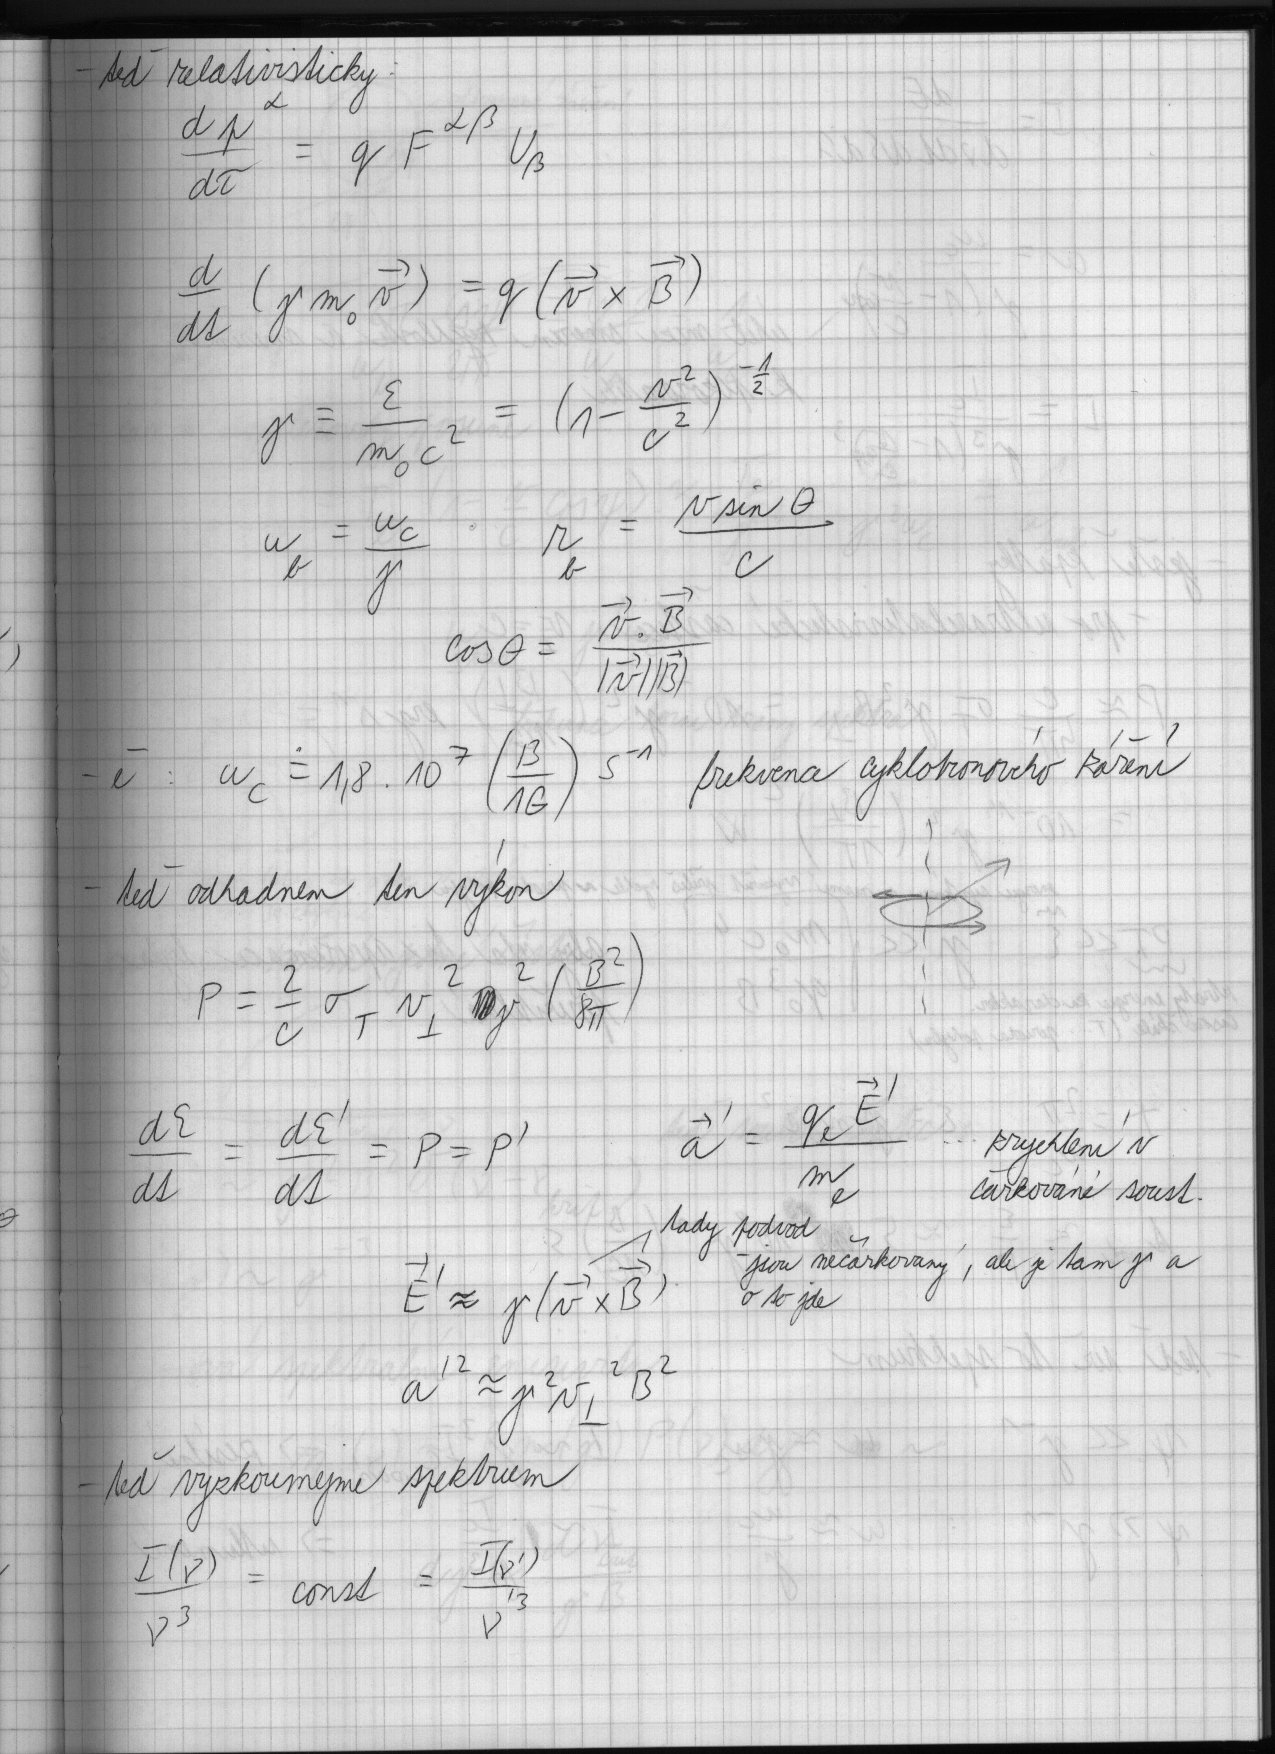 - teď relativisticky:
dp^α/dτ = q F^{αβ} U_β
d/dt (γ m₀ v⃗) = q (v⃗ × B⃗)
γ ≡ ε/(m₀c²) = (1 - v²/c²)^{-1/2}
ω_b = ω_c/γ   r_b = v sin θ / c
cos θ = v⃗ . B⃗ / |v⃗||B⃗|
- e⁻ : ω_c ≐ 1,8 . 10⁷ (B/1G) s⁻¹ frekvence cyklotronového záření
- teď odhadnem ten výkon
P = 2/c σ_T v_⊥² γ² (B²/8π)
dε/dt = dε'/dt = P = P'   a⃗' = q_e E⃗' / m_e ... zrychlení v
čárkované soust.
tady podvod
E⃗' ≈ γ (v⃗ × B⃗)   - jsou nečárkovaný, ale je tam γ a
o to jde
a'² ≈ γ² v_⊥² B²
- teď vyzkoumejme spektrum
I(ν)/ν³ = const = I(ν')/ν'³